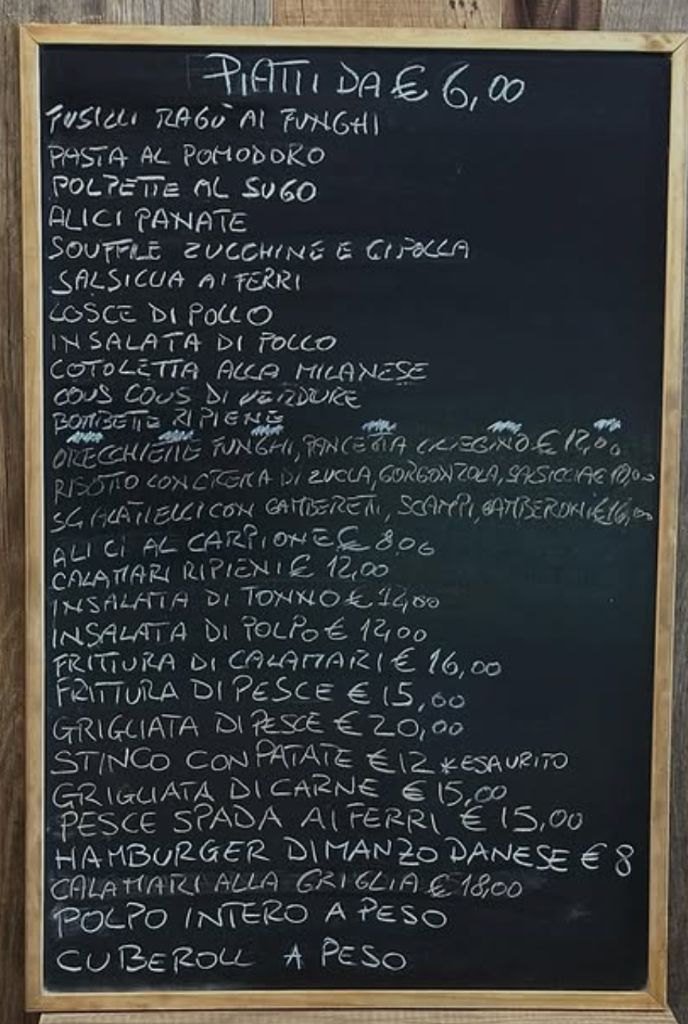 PIATTI DA € 6,00
FUSILLI RAGÙ AI FUNGHI
PASTA AL POMODORO
POLPETTE AL SUGO
ALICI PANATE
SOUFFLE ZUCCHINE E CIPOLLA
SALSICCIA AI FERRI
COSCE DI POLLO
INSALATA DI POLLO
COTOLETTA ALLA MILANESE
COUS COUS DI VERDURE
BOMBETTE RIPIENE
ORECCHIETTE FUNGHI, PANCETTA CILIEGINO € 12,00
RISOTTO CON CREMA DI ZUCCA, GORGONZOLA, SALSICCIA € 10,00
SCIALATIELLI CON GAMBERETTI, SCAMPI, GAMBERONI € 16,00
ALICI AL CARPIONE € 8 00
CALAMARI RIPIENI € 12,00
INSALATA DI TONNO € 12,00
INSALATA DI POLPO € 12,00
FRITTURA DI CALAMARI € 16,00
FRITTURA DI PESCE € 15,00
GRIGLIATA DI PESCE € 20,00
STINCO CON PATATE € 12 *ESAURITO
GRIGLIATA DI CARNE € 15,00
PESCE SPADA AI FERRI € 15,00
HAMBURGER DI MANZO DANESE € 8
CALAMARI ALLA GRIGLIA € 18,00
POLPO INTERO A PESO
CUBEROLL A PESO